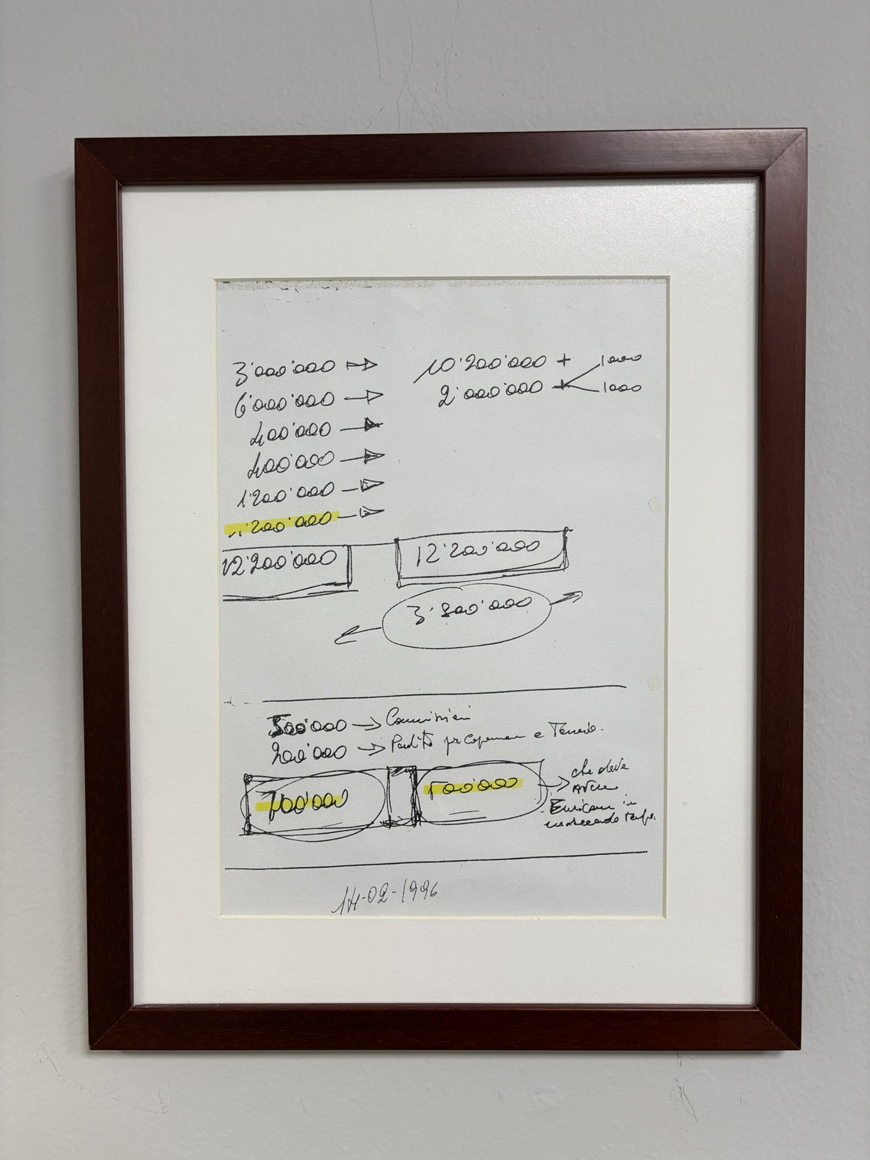 3'000'000
10'200'000 + 1000
6'000'000
2'000'000 + 1000
400'000
400'000
1'200'000
1'200'000
12'200'000
12'200'000
3'800'000
500'000 Commissioni
200'000 e
700'000
500'000 che deve
in
14-02-1996